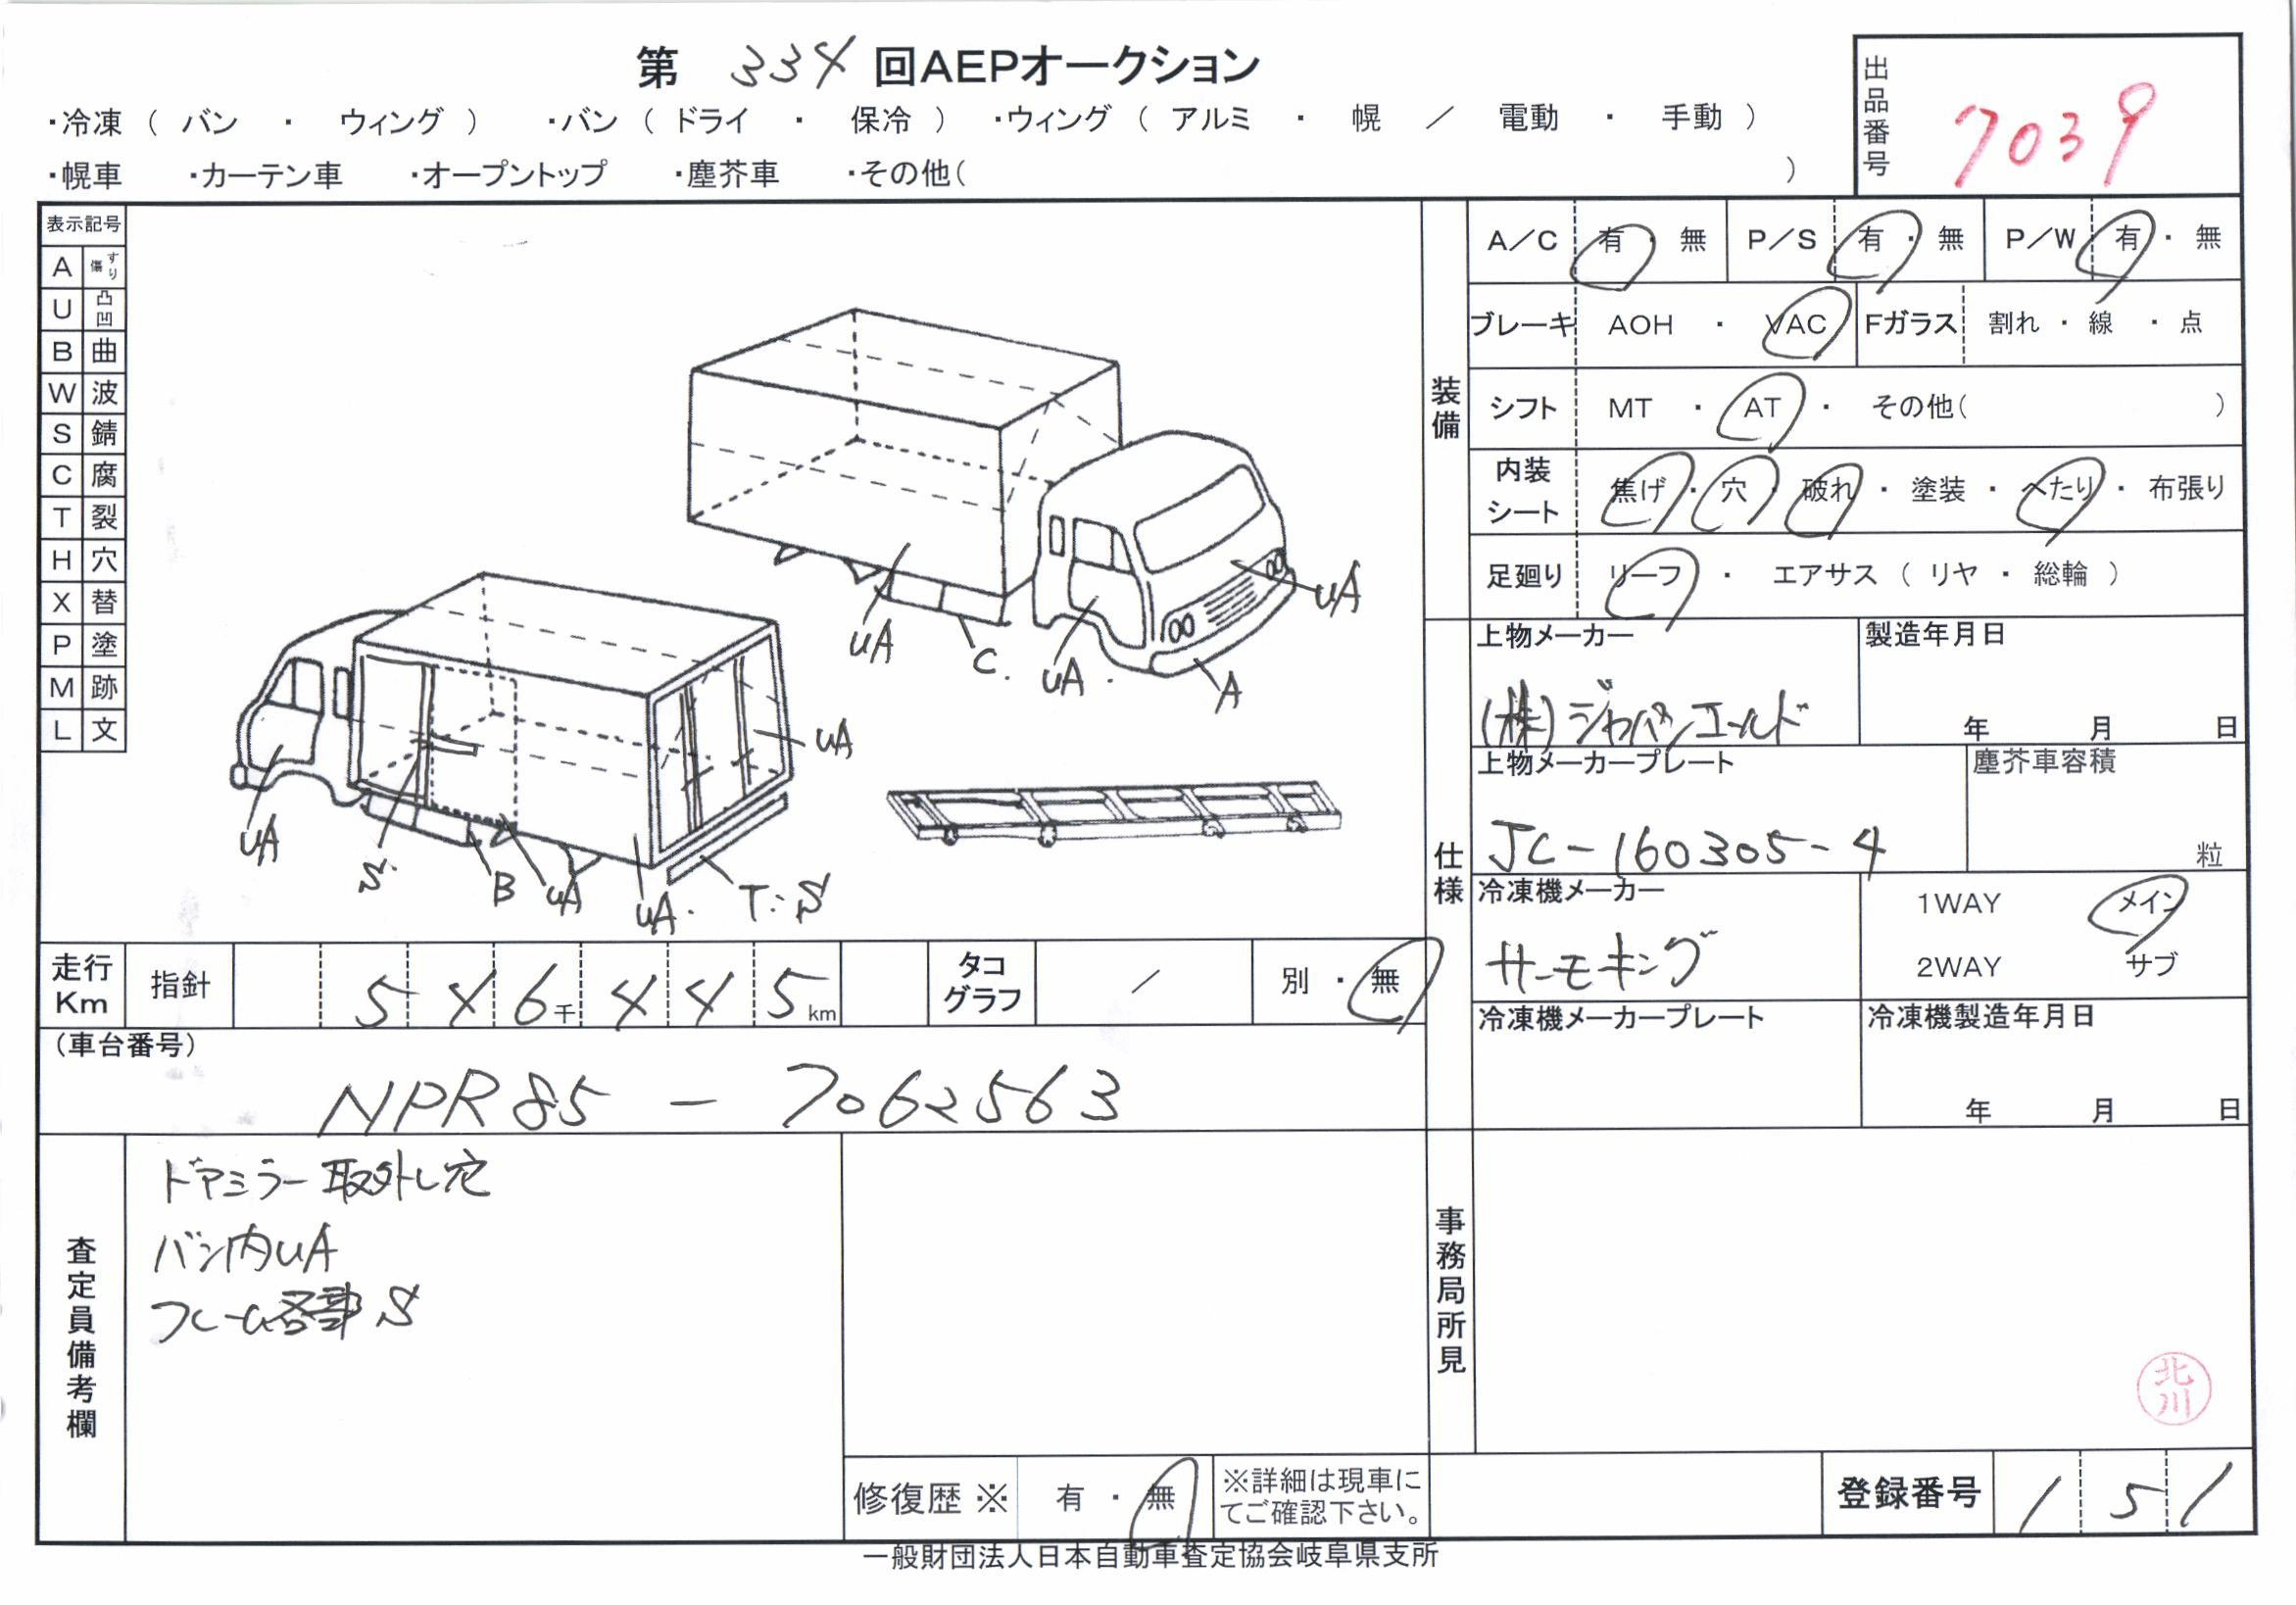 第 334 回AEPオークション
出品番号 7039
・冷凍 ( バン ・ ウィング ) ・バン ( ドライ ・ 保冷 ) ・ウィング ( アルミ ・ 幌 / 電動 ・ 手動 )
・幌車 ・カーテン車 ・オープントップ ・塵芥車 ・その他( )
表示記号
A すり傷
U 凸凹
B 曲
W 波
S 錆
C 腐
T 裂
H 穴
X 替
P 塗
M 跡
L 文
uA
C.
uA.
A
uA
uA
S.
B
uA
uA.
T:S
uA
装備
A/C 有・無 P/S 有・無 P/W 有・無
ブレーキ AOH ・ VAC Fガラス 割れ ・ 線 ・ 点
シフト MT ・ AT ・ その他( )
内装シート 焦げ ・ 穴 ・ 破れ ・ 塗装 ・ へたり ・ 布張り
足廻り リーフ ・ エアサス ( リヤ ・ 総輪 )
仕様
上物メーカー 製造年月日
(株)ジャパンエールド 年 月 日
上物メーカープレート 塵芥車容積
JC-160305-4 粒
冷凍機メーカー 1WAY メイン
サーモキング 2WAY サブ
冷凍機メーカープレート 冷凍機製造年月日
年 月 日
走行Km 指針 546千445km タコグラフ / 別・無
(車台番号)
NPR85-7062563
査定員備考欄
ドアミラー取外し穴
バン内uA
フレーム各部S
修復歴 ※ 有 ・ 無 ※詳細は現車にてご確認下さい。
事務局所見
北川
登録番号 151
一般財団法人日本自動車査定協会岐阜県支所